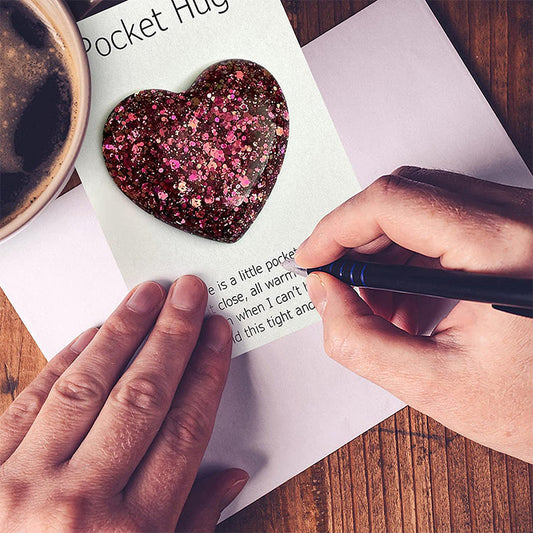 Pocket Hug
e is a little pocket
t close, all warm
n when I can't
ld this tight and